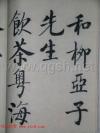 和柳亞子
先生
飲茶粵海